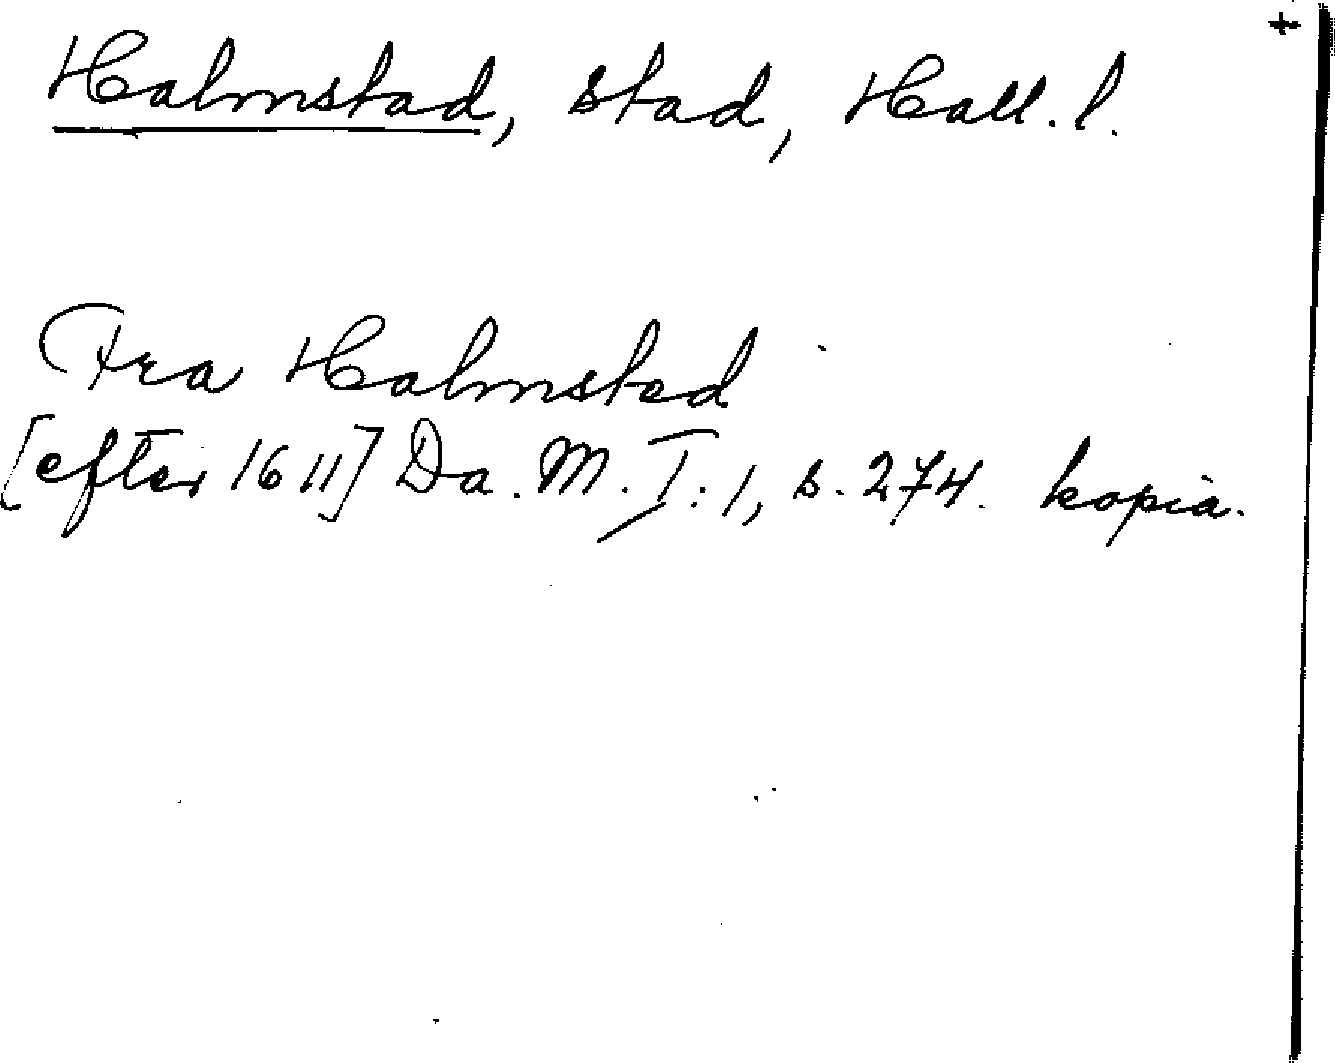 Halmstad, stad, Hall. l.
Fra Halmsted
[efter 1611] Da. M. I: 1, s. 274. kopia.